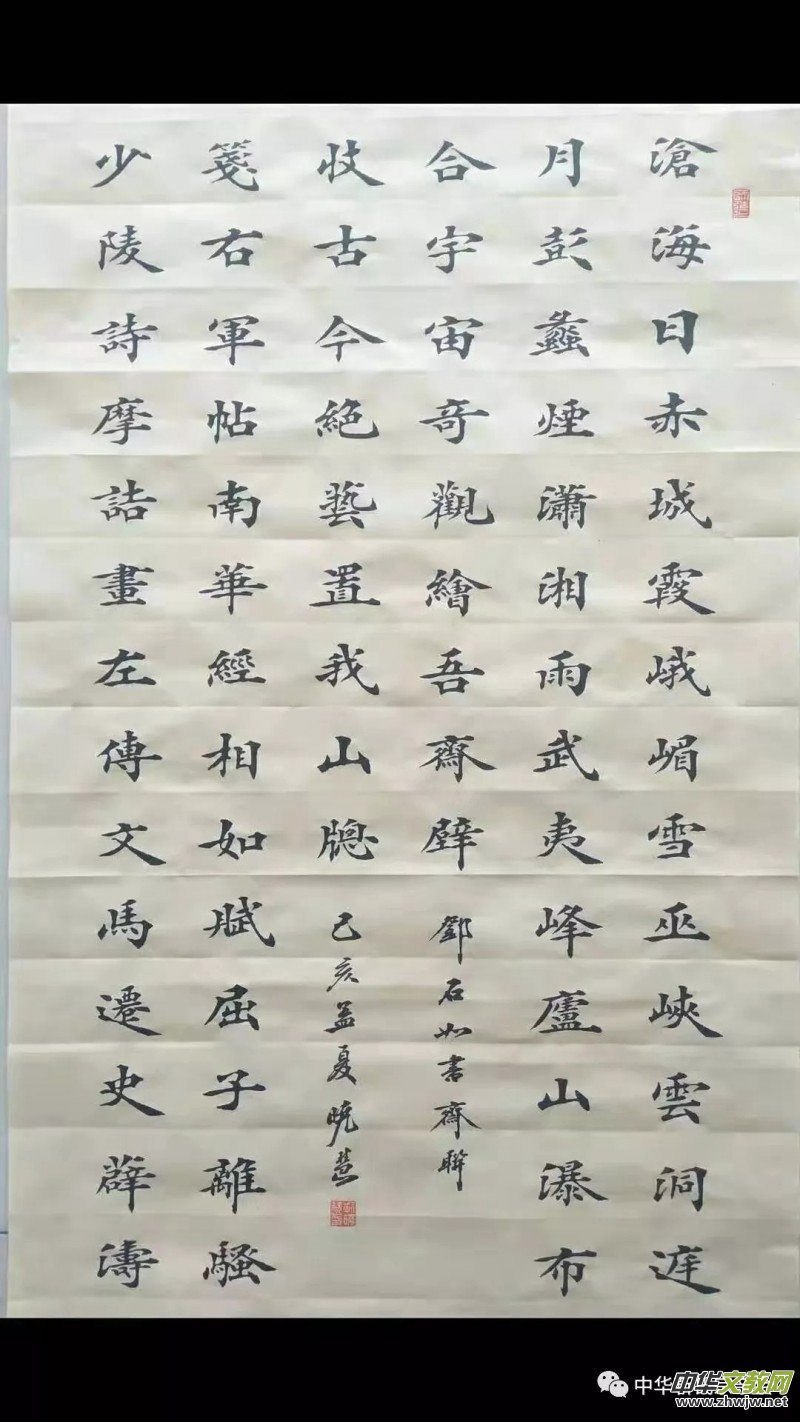 滄海日赤城霞峨嵋雪巫峽雲洞庭
月彭蠡煙瀟湘雨武夷峰廬山瀑布
合宇宙奇觀繪吾齋壁
鄧石如書齋聯
少陵詩摩詰畫左傳文馬遷史薛濤
箋右軍帖南華經相如賦屈子離騷
收古今絕藝置我山牕
己亥孟夏曉慧
中华文教网
www.zhwjw.net